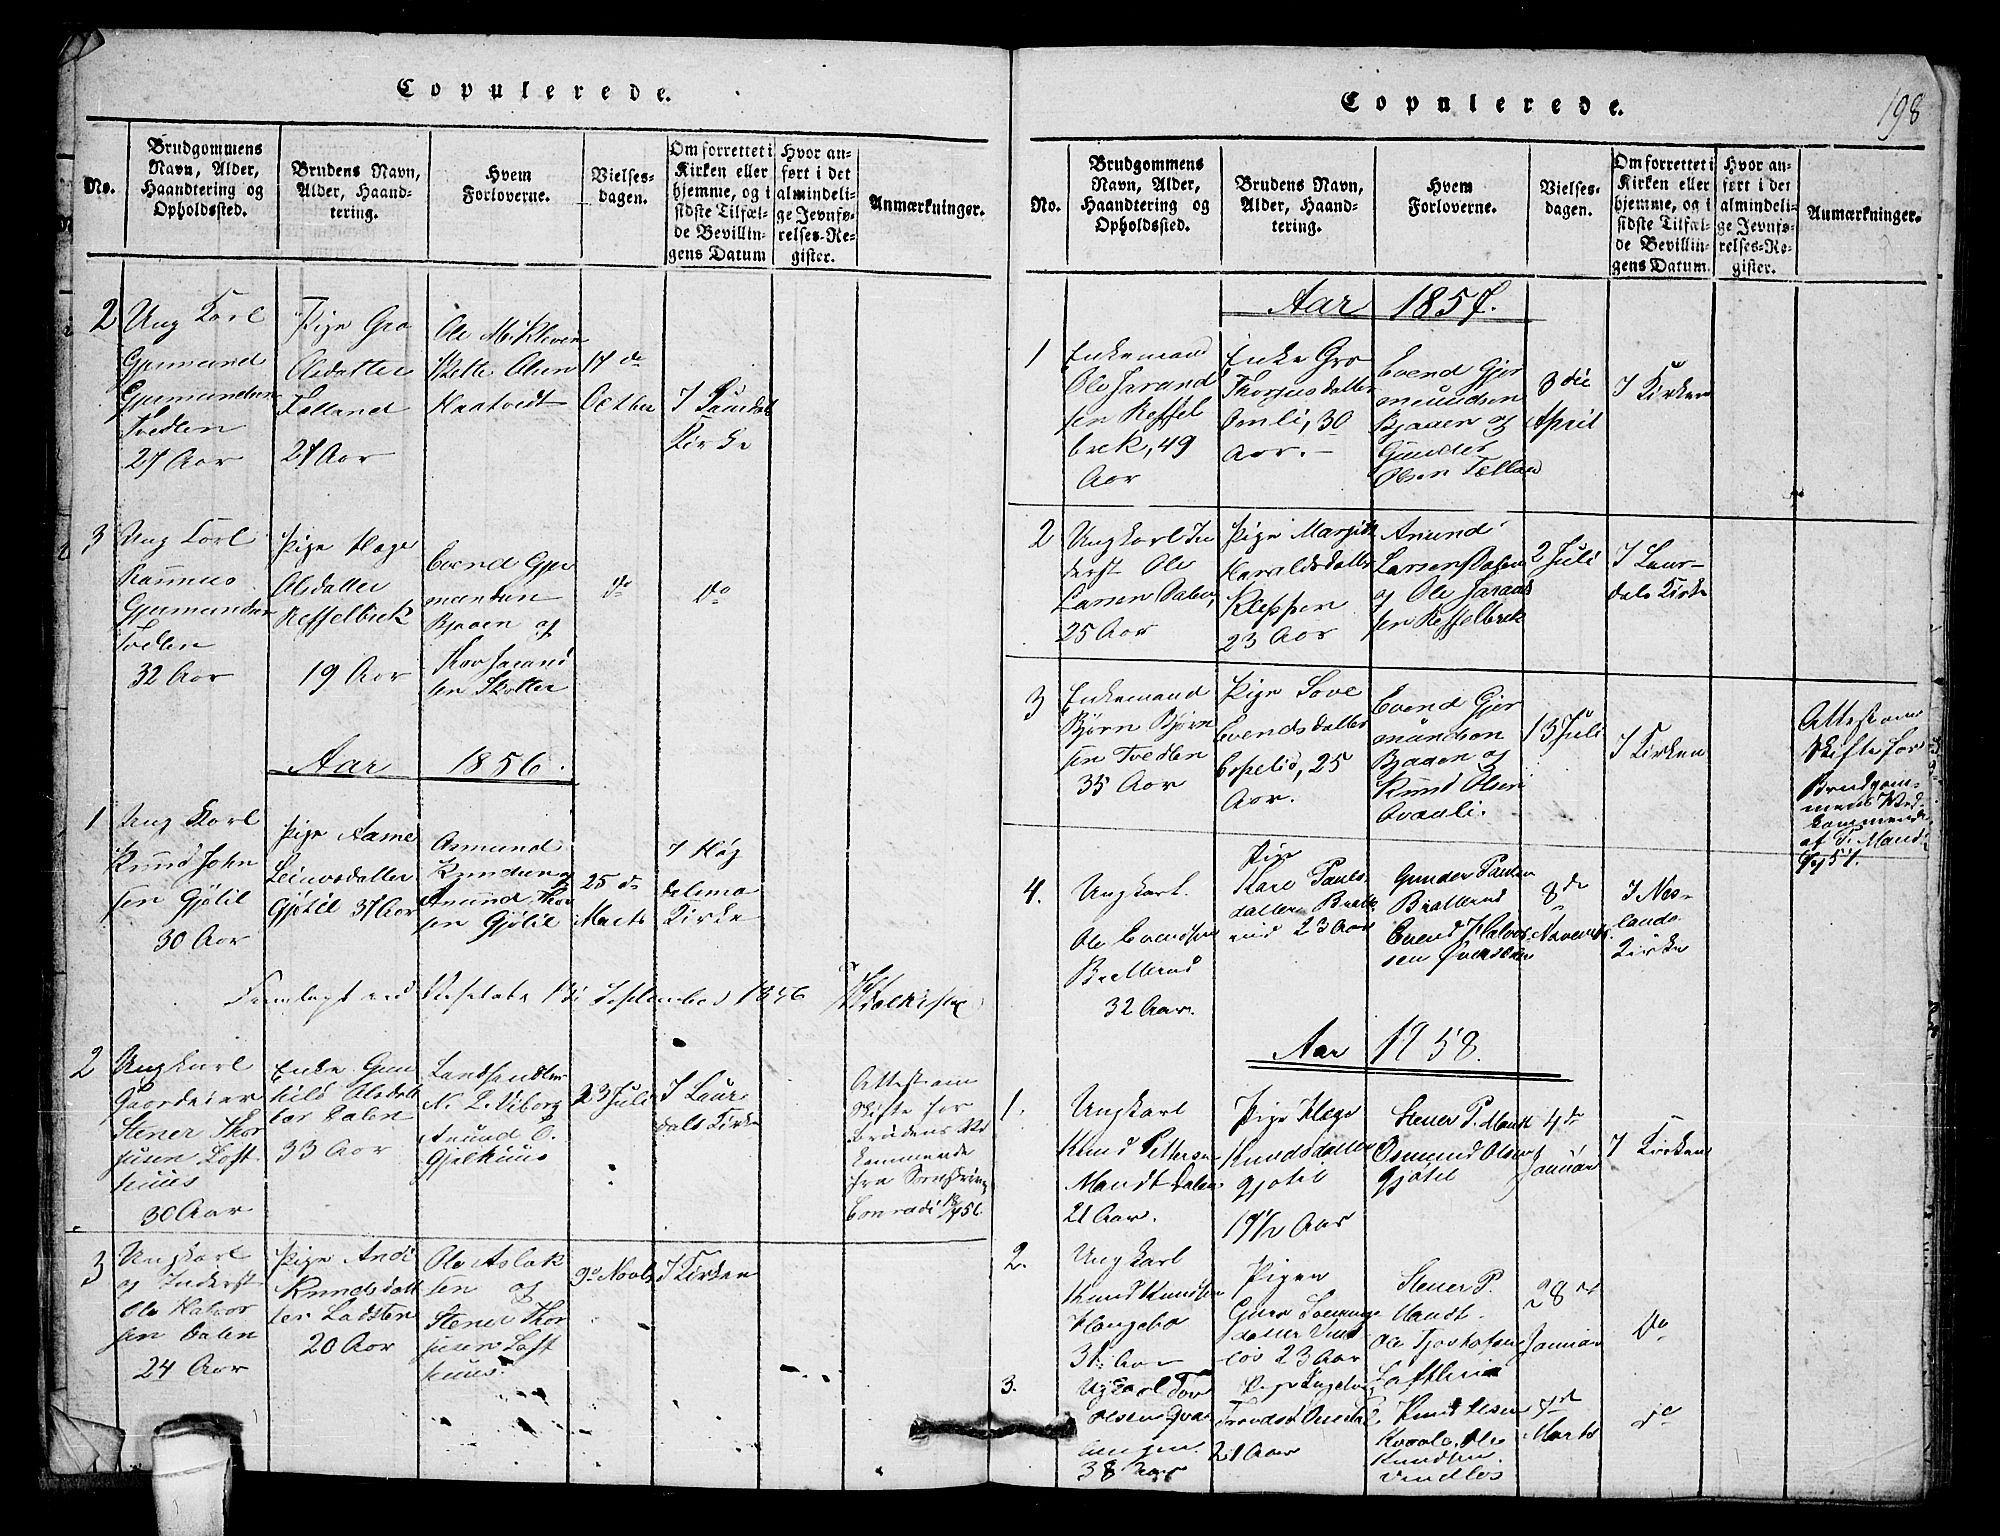 Copulerede.
No.
Brudgommens
Navn, Alder,
Haandtering og
Opholdssted.
Brudens Navn,
Alder, Haand-
tering.
Hvem
Forloverne.
Vielses-
dagen.
Om forrettet i
Kirken eller
hjemme, og i
sidste Tilfæl-
de Bevillin-
gens Datum
Hvor an-
ført i det
almindeli-
ge Jevnfø-
relses-Re-
gister.
Anmærkninger.
2
Ung Karl
Gjermund
Gjermundsen
Tvedten
27 Aar
Pige Gro
Olsdatter
Felland
27 Aar
Ole
Olsen
Haatvedt
17 de
Octber
I Laurdal
Kirke
3
Ung Karl
Rasmus
Gjermundsen
Tvedten
32 Aar
Pige Hæge
Olsdatter
Reffelbrek
19 Aar
Evend Gjer
mundsen
Bjaaen og
Tarand
sen
do
do
Aar 1856.
1
Ung Karl
Knud John
sen Gjøtil
30 Aar
Pige Aasne
Leivsdatter
Gjøtil 37 Aar
Osmund
Knudsen
Anund Thor
sen Gjøtil
25 de
Marts
I Høg
dalsmo
Kirke
Fremlagt ved Visitats September 1856
2
Ungkarl
Gaardeier
Stener Thor
sen Loft
huus
30 Aar
Enke Gun
hild Olsdat
ter Dalen
33 Aar
Landhandler
N. L. Viborg
Anund O.
Gjelhuus
23 Juli
I Laur
dals Kirke
Attest om
Skifte for
Brudens Ved
kommende
fra Sorenskriver
Conradi
3
Ungkarl
og Inderst
Ole Halvor
sen Dalen
24 Aar
Pige
Knudsdat
ter Ladsten
20 Aar
Ole Aslak
sen og
Stener Thor
sen Loft
huus.
9de Novbr
I Kirken
Copulerede.
198
No.
Brudgommens
Navn, Alder,
Haandtering og
Opholdssted.
Brudens Navn,
Alder, Haand-
tering.
Hvem
Forloverne.
Vielses-
dagen.
Om forrettet i
Kirken eller
hjemme, og i
sidste Tilfæl-
de Bevillin-
gens Datum.
Hvor an-
ført i det
almindeli-
ge Jevnfø-
relses-Re-
gister.
Anmærkninger.
Aar 1857.
1
Enkemand
Ole Jarand
sen Reffel
brek, 49
Aar
Enke Gro
Thorjusdatter
Omli, 30
Aar. –
Evend Gjer
mundsen
Bjaaen og
Gunder
Olsen Felland
3 die
April
I Kirken
2
Ungkarl In
derst Ole
Larsen Dalen,
25 Aar
Pige Margith
Haraldsdatter
Kleppen
23 Aar
Anund
Larsen Dalen
og Ole Jarand
sen Reffelbrek
2 Juli
I Laur-
dals Kirke
3
Enkemand
Bjørn Bjørn
sen Tvedten
35 Aar
Pige Sove
Evendsdatter
Espelid, 25
Aar.
Evend Gjer
mundsen
Bjaaen og
Knud Olsen
Qvaali.
13 Juli
I Kirken
Attest om
Skifte for
Brudgom-
mens Ved-
kommende
af P. Mandt
4.
Ungkarl
Ole Evendsen
32 Aar.
Pige
Kari Pauls
datter
23 Aar
Gunder Paulsen
Evend Halvor
sen
8de
November
I Nes-
lands
Kirke
Aar 1858.
1.
Ungkarl
Knud Pettersen
Mandt Dalen
21 Aar.
Pige Hæge
Knudsdatter
Gjøtil
19½ Aar
Stener P. Mandt
Osmund Olsen
Gjøtil
4de
Januar
I Kirken
2.
Ungkarl
Knud Knudsen
Haugebø
31 Aar
Pigen
datter Vind
løs 23 Aar
Stener P.
Mandt.
Ole
28de
Januar
do
3.
Ungkarl Tov
Olsen
38 Aar
Pige Ingeborg
21 Aar
Knud Olsen
Ole
Knudsen
Vindløs
Marts
do